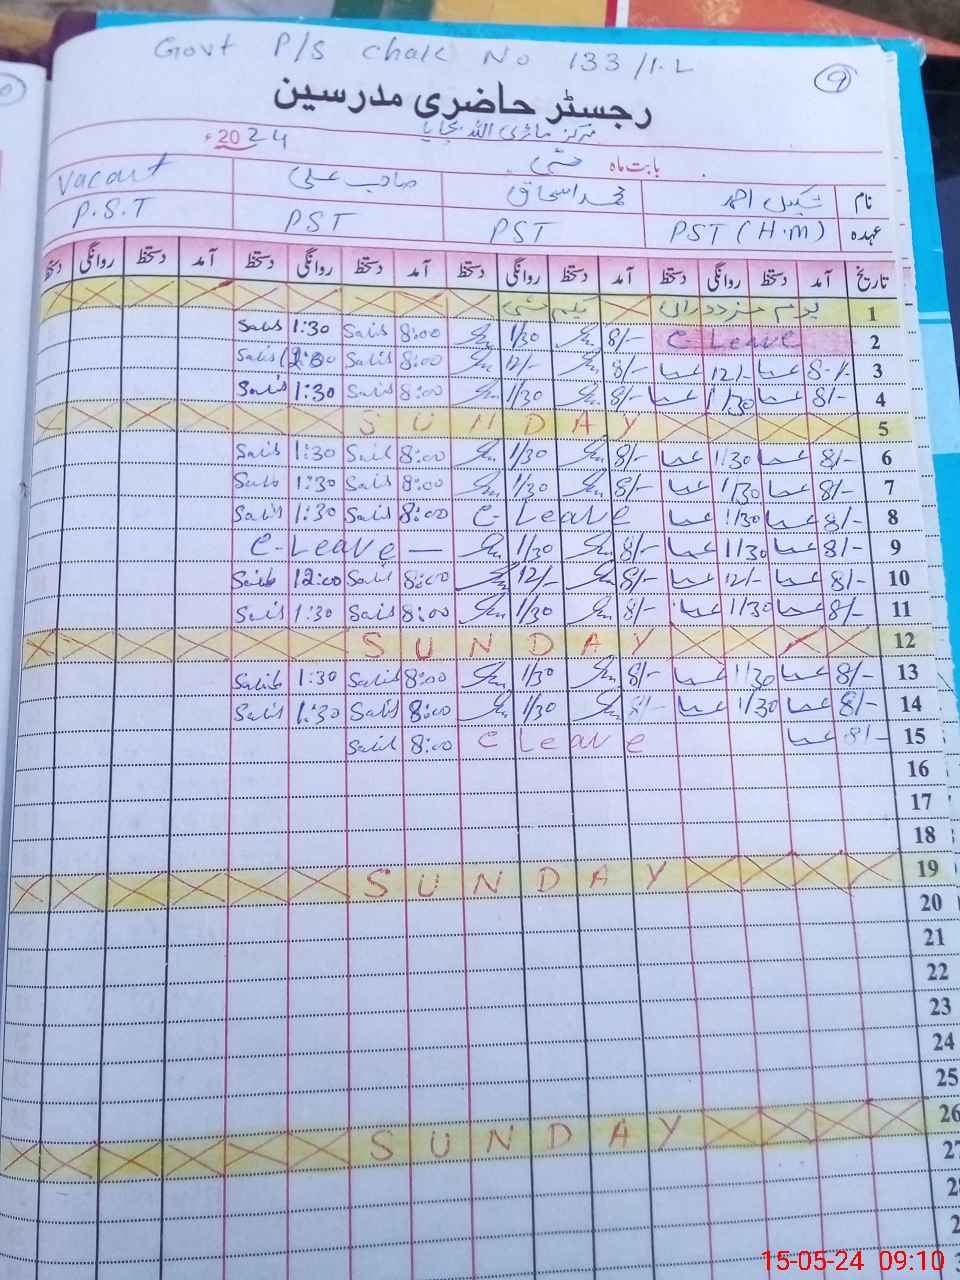 Govt P/S Chak No 133/1.L
9
رجسٹر حاضری مدرسین
مرکز ماڑی اللہ بچایا
2024ء
بابت ماہ مئی
نام شکیل احمد محمد اسحاق صاحب علی Vacant
عہدہ PST (H.M) PST PST P.S.T
تاریخ آمد دستخط روانگی دستخط آمد دستخط روانگی دستخط آمد دستخط روانگی دستخط آمد دستخط روانگی دستخط
1 یوم مزدوراں یکم مئی
2 e-Leave 8/- 1/30 8:00 Salib 1:30 Salib
3 8-/- 12/- 8/- 12/- 8:00 Salib 12:00 Salib
4 8/- 1/30 8/- 1/30 8:00 Salib 1:30 Salib
5 SUNDAY
6 8/- 1/30 8/- 1/30 8:00 Salib 1:30 Salib
7 8/- 1/30 8/- 1/30 8:00 Salib 1:30 Salib
8 8/- 1/30 e-Leave 8:00 Salib 1:30 Salib
9 8/- 1/30 8/- 1/30 e-Leave —
10 8/- 12/- 8/- 12/- 8:00 Salib 12:00 Salib
11 8/- 1/30 8/- 1/30 8:00 Salib 1:30 Salib
12 SUNDAY
13 8/- 1/30 8/- 1/30 8:00 Salib 1:30 Salib
14 8/- 1/30 8/- 1/30 8:00 Salib 1:30 Salib
15 8/- e Leave 8:00 Salib
16
17
18
19 SUNDAY
20
21
22
23
24
25
26 SUNDAY
27
15-05-24 09:10